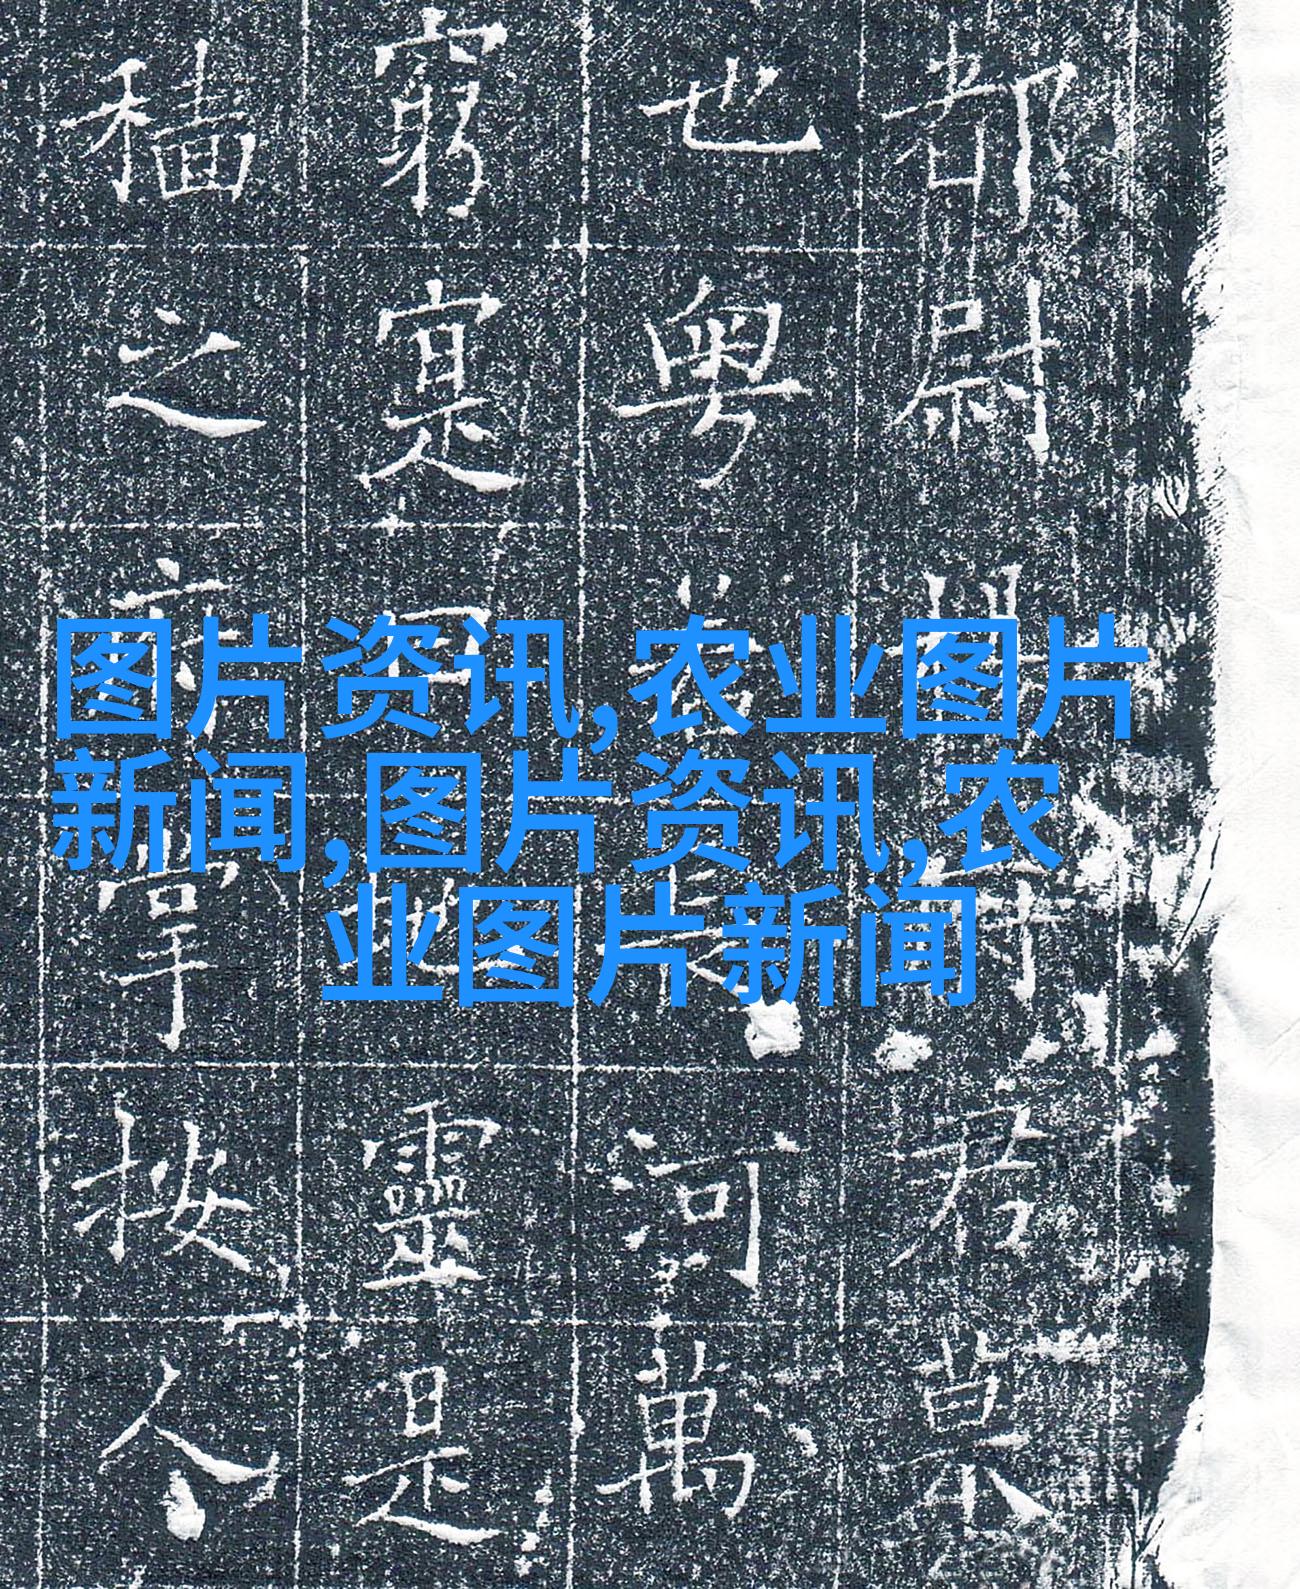 图片资讯,农业图片
新闻,图片资讯,农
业图片新闻
都尉君
也粤河萬
窮寔地靈是
穡之掌按人